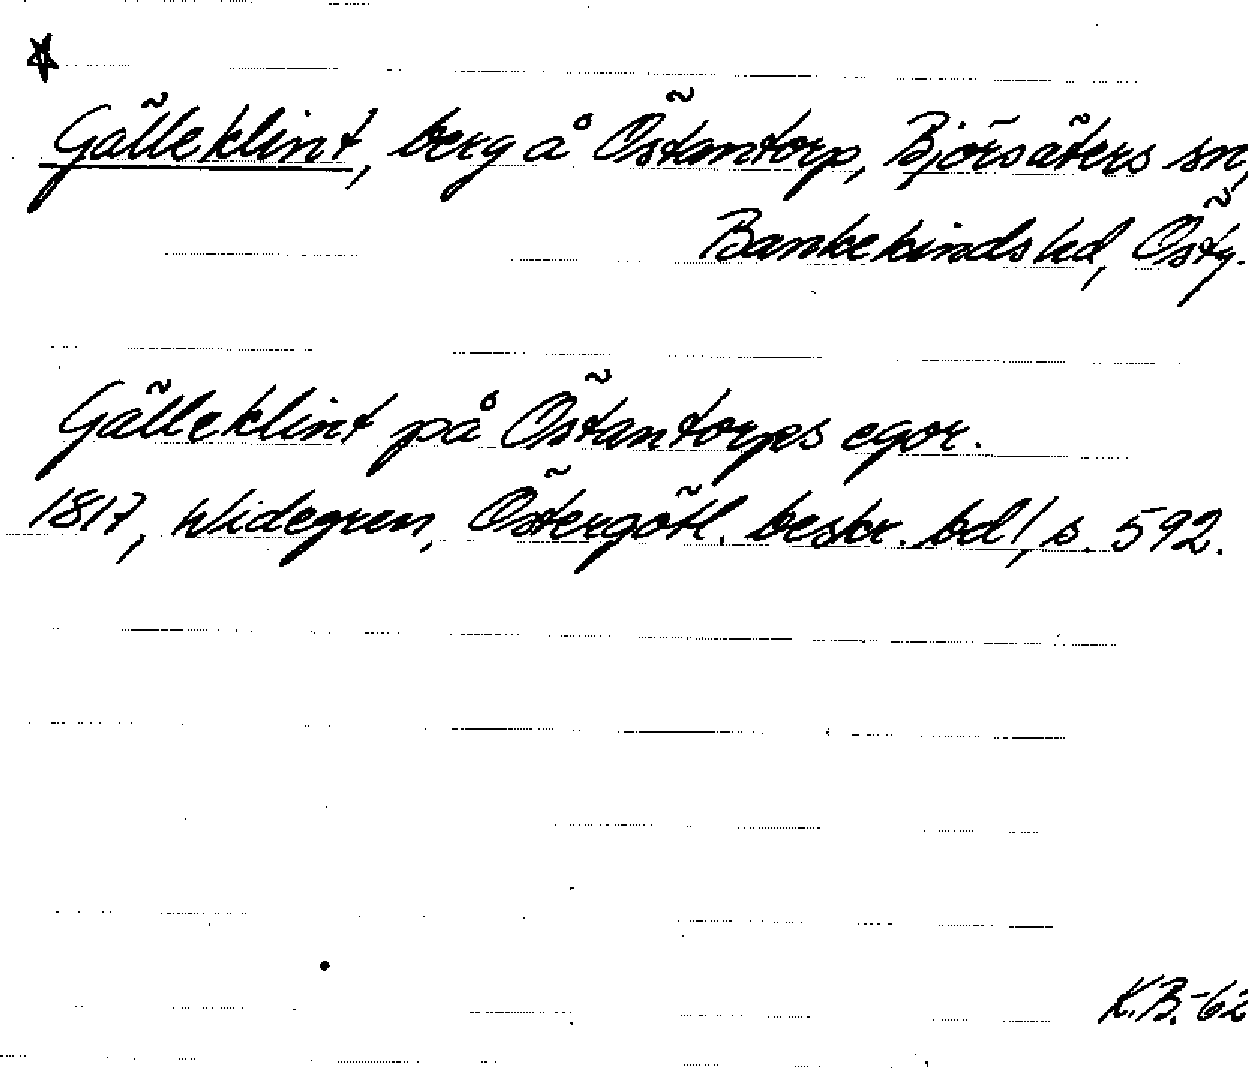 Gälleklint, berg å Östantorp, Björsäters sn,
Bankekinds hd, Östg.
Gälleklint på Östantorps egor.
1817, Widegren, Östergötl. beskr. bd 1, s. 592.
K.B.-62